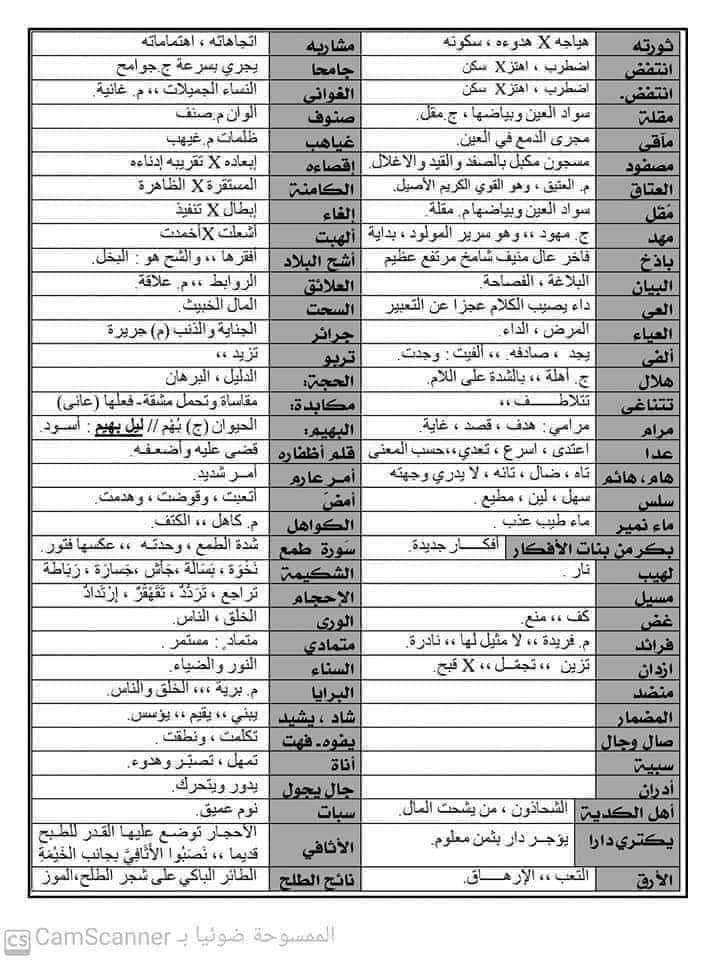 ثورته هياجه X هدوءه ، سكونه مشاربه اتجاهاته ، اهتماماته
انتفض اضطرب ، اهتزX سكن جامحا يجري بسرعة ج.جوامح
انتفض. اضطرب ، اهتزX سكن الغواني النساء الجميلات ،، م. غانية.
مقلة سواد العين وبياضها ، ج.مقل. صنوف ألوان م.صنف
مآقي مجرى الدمع في العين. غياهب ظلمات م.غيهب
مصفود مسجون مكبل بالصفد والقيد والاغلال. إقصاءه إبعاده X تقريبه إدناءه
العتاق م. العتيق ، وهو القوي الكريم الأصيل. الكامنة المستقرة X الظاهرة
مُقل سواد العين وبياضها م. مقلة. إلغاء إبطال X تنفيذ
مهد ج. مهود ،، وهو سرير المولود ، بداية ألهبت أشعلت Xأخمدت
باذخ فاخر عال منيف شامخ مرتفع عظيم أشح البلاد أفقرها ،، والشح هو : البخل.
البيان البلاغة ، الفصاحة. العلائق الروابط ،، م. علاقة.
العي داء يصيب الكلام عجزا عن التعبير السحت المال الخبيث.
العياء المرض ، الداء. جرائر الجناية والذنب (م) جريرة
ألفى يجد ، صادفه. ،، ألفيت : وجدت. تربو تزيد ،،
هلال ج. أهلة ،، بالشدة على اللام. الحجة: الدليل ، البرهان
تتناغى تتلاطـــــــف ،، مكابدة: مقاساة وتحمل مشقة- فعلها (عانى)
مرام مرامي: هدف ، قصد ، غاية. البهيم: الحيوان (ج) بُهْم // ليل بهيم : أسـود.
عدا اعتدى ، اسرع ، تعدي،،حسب المعنى قلم أظفاره قضى عليه وأضعـفـه.
هام، هائم تاه ، ضال ، تائه ، لا يدري وجهته أمر عارم أمـر شديد.
سلس سهل ، لين ، مطيع . أمضَ أتعبت ، وقوضت ، وهدمت.
ماء نمير ماء طيب عذب . الكواهل م. كاهل ،، الكتف.
بكر من بنات الأفكار أفكـــــار جديدة. سَورة طمع شدة الطمع ، وحدتـه ،، عكسها فتور.
لهيب نار . الشكيمة نَخْوَة ، بَسَالَة ،جَأْش ،جَسارَة ، رَبَاطَة
مسيل الإحجام تراجع ، تَرَدُّدٌ ، تَقَهْقُرٌ ، إِرْتِدَادٌ
غض كف ،، منع. الورى الخلق ، الناس.
فرائد م. فريدة ،، لا مثيل لها ،، نادرة. متمادي متمادٍ : مستمر .
ازدان تزين ،، تجمّـل ،، X قبح. السناء النور والضياء.
منضد البرايا م. برية ،،، الخلق والناس.
المضمار شاد ، يشيد يبني ،، يقيم ،، يؤسس.
صال وجال يفوه- فهت تكلمت ، ونطقت .
سبية أناة تمهل ، تصبّـر وهدوء.
أدران جال يجول يدور ويتحرك.
أهل الكدية الشحاذون ، من يشحت المال. سبات نوم عميق.
يكتري دارا يؤجــر دار بثمن معلوم. الأثافي الأحجار توضـع عليهـا القـدر للطـبخ
قديما ،، نَصَبُوا الأَثَافِيَّ بِجانب الخَيْمَةِ
الأرق التعب ،، الإرهـــــاق. نائح الطلح الطائر الباكي على شجر الطلح،الموز
الممسوحة ضوئيا بـ CamScanner
CS